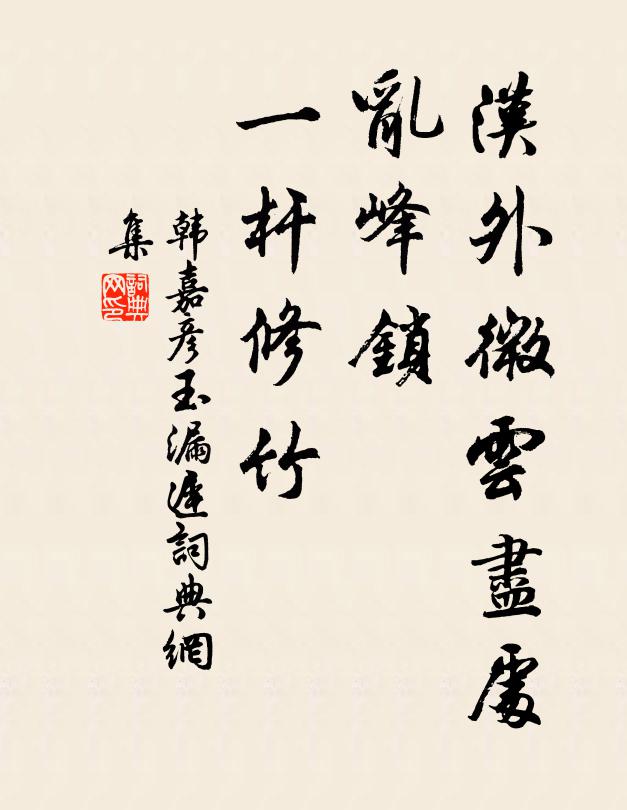 漢外微雲盡處
亂峰鎖
一杆修竹
韩嘉彦玉漏遲詞典網
集
詞典
网印